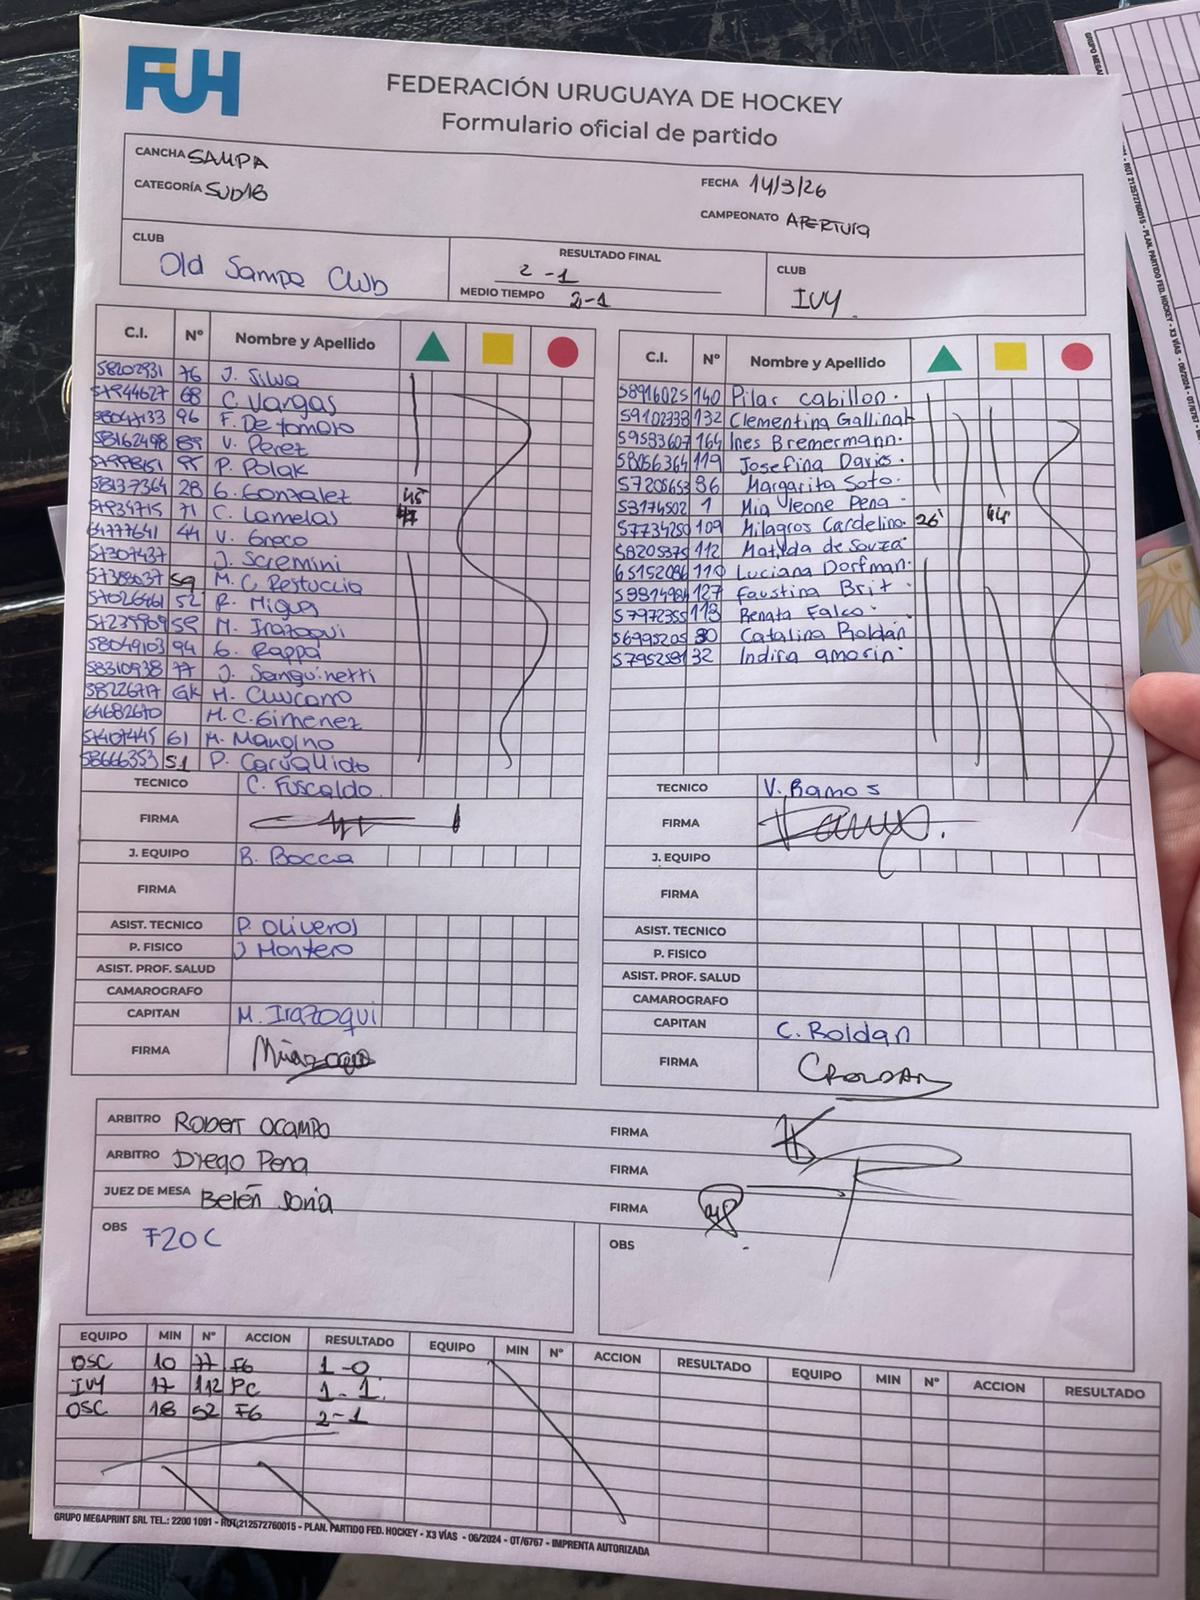 FUH
FEDERACIÓN URUGUAYA DE HOCKEY
Formulario oficial de partido
CANCHA SAMPA
CATEGORÍA SUD18
FECHA 14/3/26
CAMPEONATO APERTURA
CLUB
Old Sampa Club
RESULTADO FINAL
2 - 1
MEDIO TIEMPO 2-1
CLUB
IVY.
C.I. Nº Nombre y Apellido
58202931 76 J. Silva
57944627 68 C. Vargas
58047133 96 F. De tomaso
58162498 89 V. Perez
P. Polak
58137364 28 G. Gonzalez 45
57934715 71 C. Lamelas
44 V. Greco
57307437 J. Scremini
59 M. C. Restuccia
52 R. Migua
M. Irazoqui
58049103 94 G. Rappa
58310938 77 J. Sanguinetti
GK M.
64682670 M. C. Gimenez
57407445 61 M. Mangino
58666353 51 P.
TECNICO C. Fuscaldo.
FIRMA
J. EQUIPO B. Bocca
FIRMA
ASIST. TECNICO P. Oliveros
P. FISICO J Montero
ASIST. PROF. SALUD
CAMAROGRAFO
CAPITAN M. Irazoqui
FIRMA
C.I. Nº Nombre y Apellido
58916025 140 Pilar Cabillon.
59102338 132 Clementina Gallinal
59593607 164 Ines Bremermann.
58056364 119 Josefina Davies.
57205653 Margarita Soto.
53174502 1 Mia Pena.
57734250 109 Milagros Cardelino. 26' 44'
58205375 112 Matilda de Souza.
65152086 110 Luciana Dorfman.
127 Faustina Brit.
57972355 113 Renata Falco.
Catalina Boldan
32 Indira amorin.
TECNICO V. Ramos
FIRMA
J. EQUIPO
FIRMA
ASIST. TECNICO
P. FISICO
ASIST. PROF. SALUD
CAMAROGRAFO
CAPITAN C. Boldan
FIRMA
ARBITRO Robert Ocampo FIRMA
ARBITRO Diego Pena FIRMA
JUEZ DE MESA Belén Soria FIRMA
OBS F20C
OBS
EQUIPO MIN Nº ACCION RESULTADO EQUIPO MIN Nº ACCION RESULTADO EQUIPO MIN Nº ACCION RESULTADO
OSC 10 77 FG 1-0
IVY 17 112 PC 1-1.
OSC 18 52 FG 2-1
GRUPO MEGAPRINT SRL TEL.: 2200 1091 - RUT,212572760015 - PLAN. PARTIDO FED. HOCKEY - X3 VÍAS - 06/2024 - OT/6767 - IMPRENTA AUTORIZADA